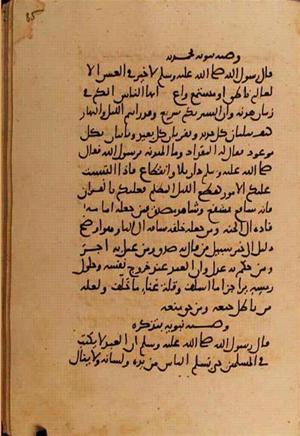 وصيه نبويه
قال رسول الله صلى الله عليه وسلم لا خير في العيش الا
لعالم ناطق او مستمع واع ايها الناس انكم في
زمان هدنه وان السير بكم سريع وقد رايتم الليل والنهار
كيف يبليان كل جديد ويقربان كل بعيد وياتيان بكل
موعود فقال له المقداد وما الهدنه يا رسول الله فقال
صلى الله عليه وسلم دار بلا وانقطاع فاذا التبست
عليكم الامور كقطع الليل المظلم فعليكم بالقران
فانه شافع مشفع وشاهد مصدق فمن جعله امامه
قاده الى الجنه ومن جعله خلفه ساقه الى النار هو اوضح
دليل الى خير سبيل من قال به صدق ومن عمل به اجر
ومن حكم به عدل وان العبد عند خروج نفسه وحلول
رمسه يرى جزا ما اسلف وقلة غنا ما خلف ولعله
من باطل جمعه ومن حق منعه
وصيه نبويه
قال رسول الله صلى الله عليه وسلم ان العبد لا يكتب
في المسلمين حتى يسلم الناس من يده ولسانه ولا ينال